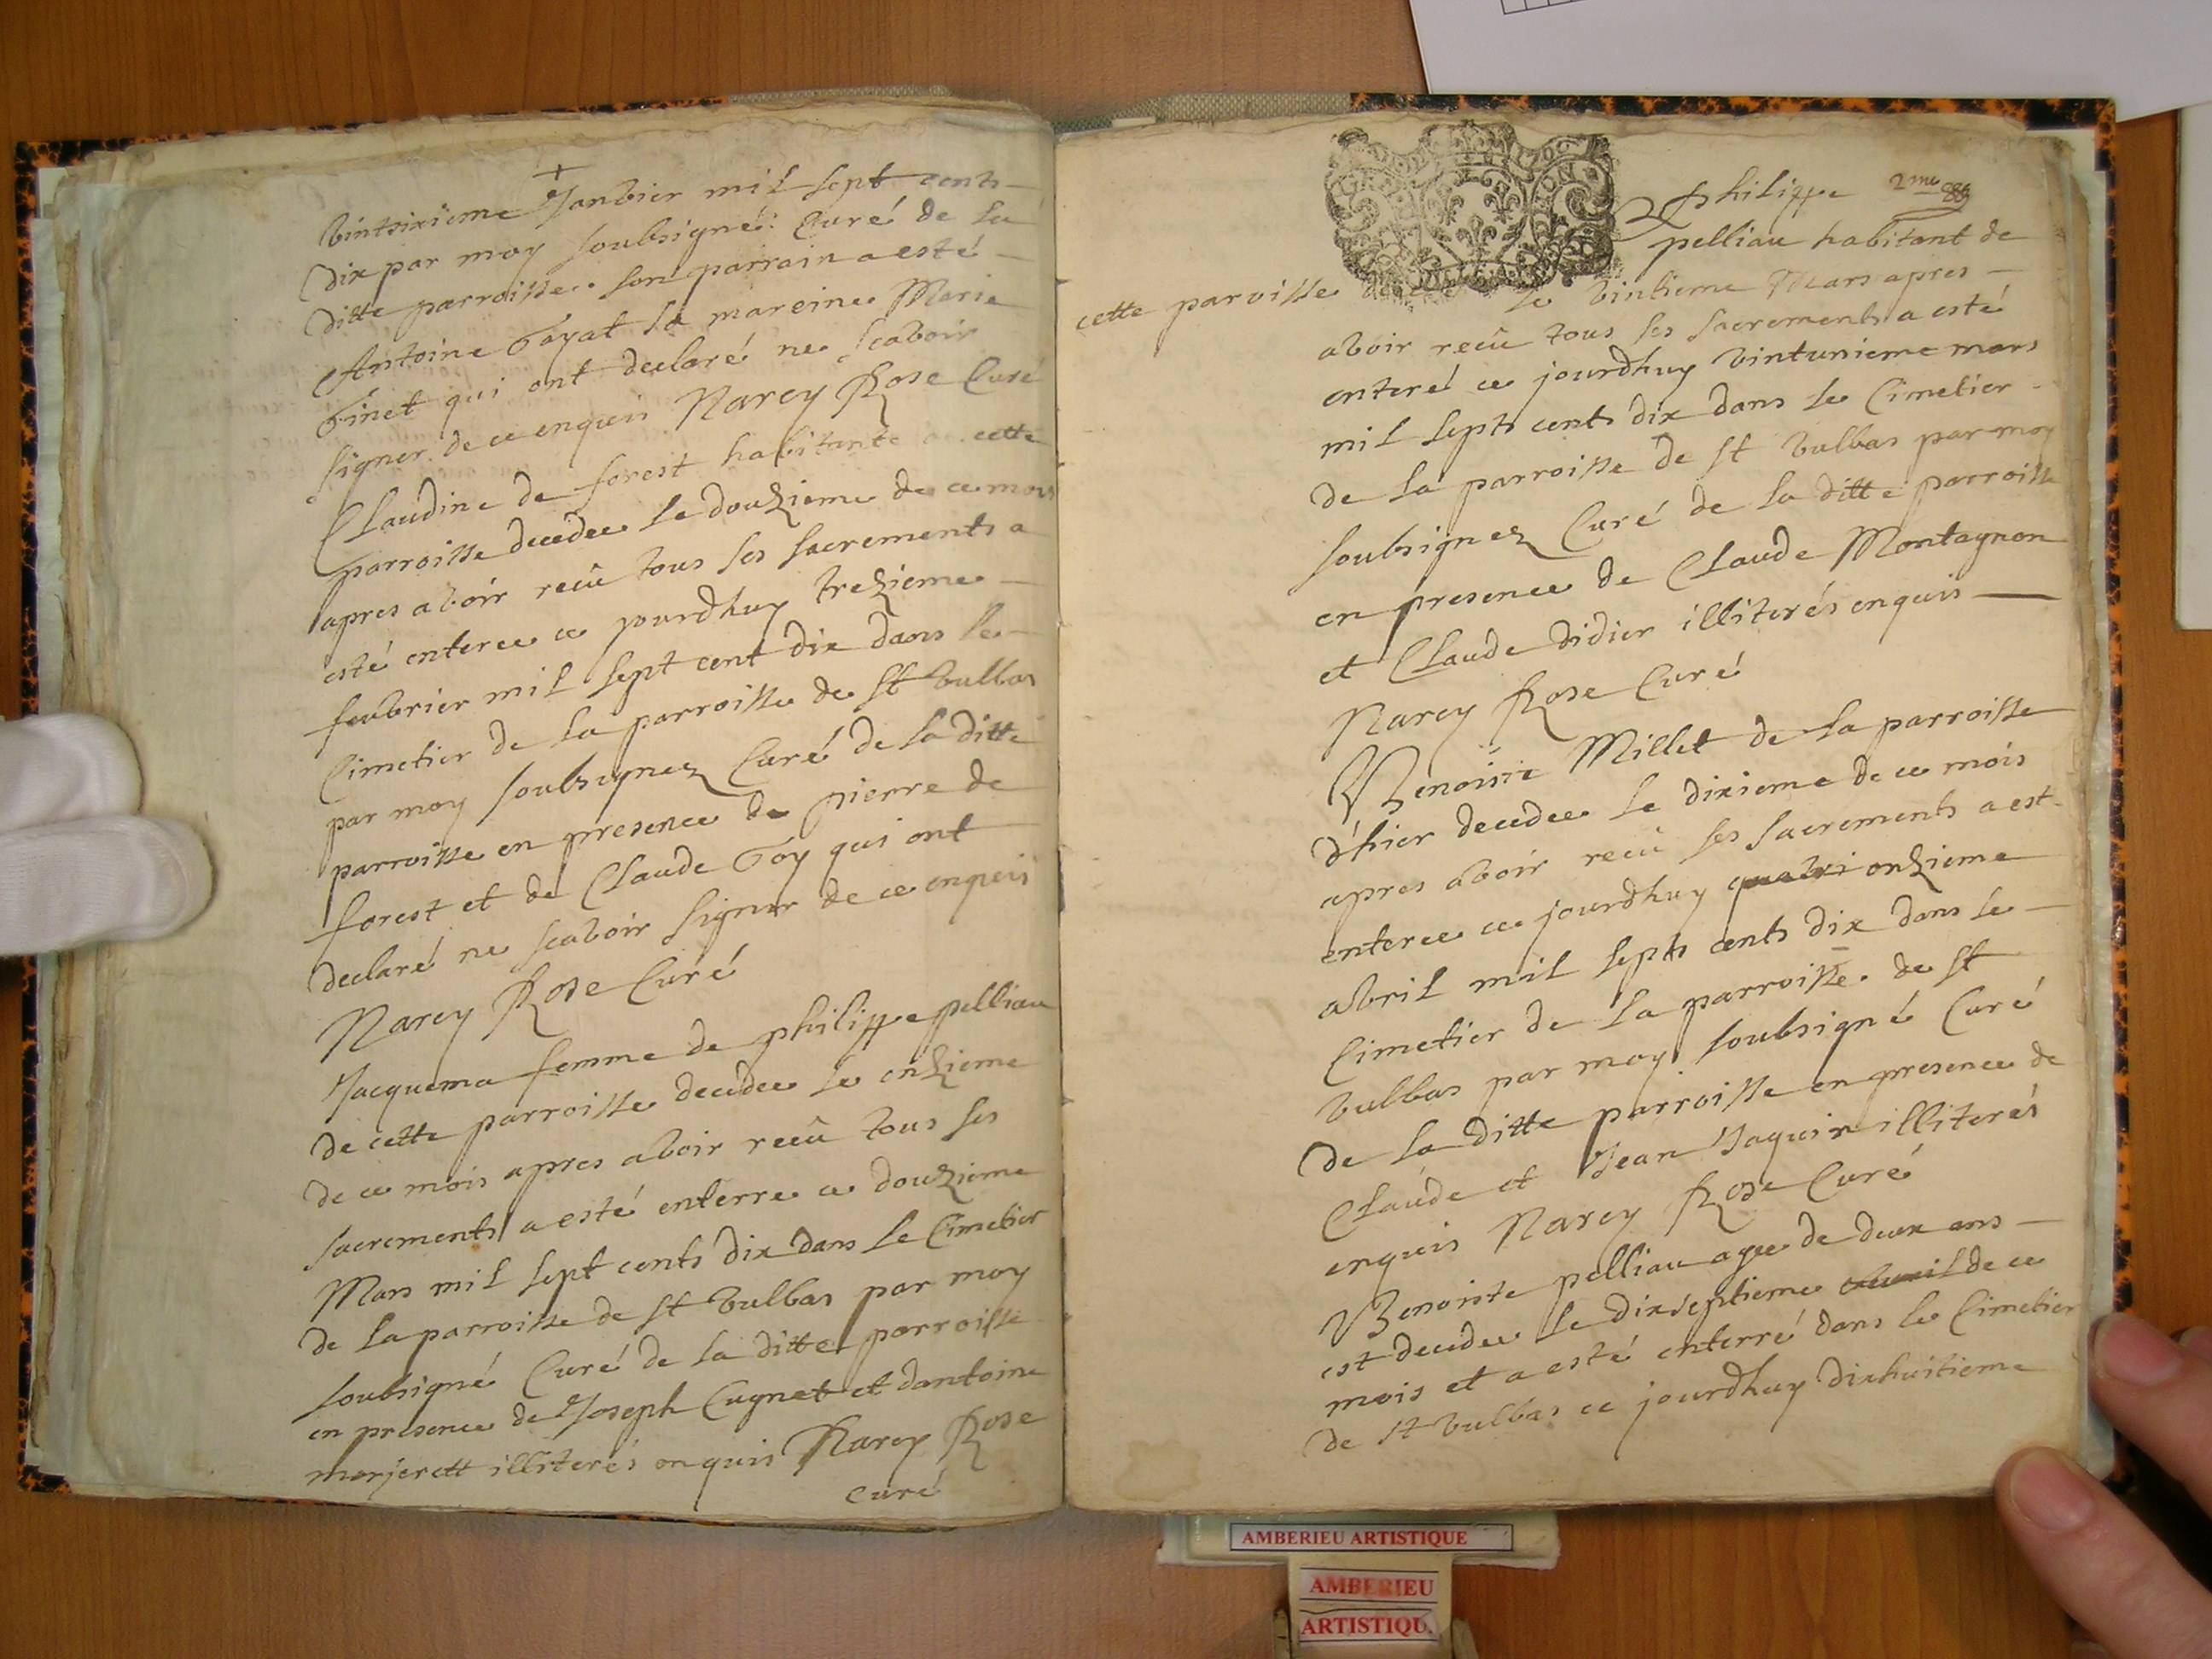 vintsixieme Janvier mil sept cents
dix par moy soubsigné Curé de la
ditte parroisse son parrain a esté
Antoine Goyat sa mareine Marie
Ginet qui ont declaré ne scavoir
signer de ce enquis Narcy Rose Curé
Claudine de forest habitante cette
parroisse decedee le douzieme de ce mois
apres avoir reçû tous ses sacrements a
esté enteree ce jourdhuy trezieme
feubrier mil sept cent dix dans le
Cimetier de la parroisse de st vulbas
par moy soubsignez Curé de la ditte
parroisse en presence de pierre de
forest et de Claude Goy qui ont
declaré ne scavoir signer de ce enquis
Narcy Rose Curé
Jacquema femme de philippe pelliau
de cette parroisse decedee le onzieme
de ce mois apres avoir reçû tous ses
sacrements a esté enterre ce douzieme
Mars mil sept cents dix dans le Cimetier
de la parroisse de st vulbas par moy
soubsigné Curé de la ditte parroisse
en presence de Joseph Cugnet et dantoine
merjerett illiterés enquis Narcy Rose
curé
2me
philippe
pelliau habitant de
cette parroisse le vintieme Mars apres
avoir reçû tous ses sacrements a esté
enteré ce jourdhuy vintunieme mars
mil septs cents dix dans le Cimetier
de la parroisse de st vulbas par moy
soubsignez Curé de la ditte parroisse
en presence de Claude Montagnon
et Claude Didier illiterés enquis
Narcy Rose Curé
Benoiste Millet de la parroisse
d'hier decedee le dixieme de ce mois
apres avoir reçû ses sacrements a est
enteree ce jourdhuy quatri onzieme
abril mil septs cents dix dans le
Cimetier de la parroisse de st
vulbas par moy soubsigné Curé
de la ditte parroisse en presence de
Claude et Jean Jaquin illiterés
enquis Narcy Rose Curé
Benoiste pelliau agee de deux ans
est decedee le dixseptieme de ce
mois et a esté enterré dans le Cimetier
de st vulbas ce jourdhuy dixhuitieme
AMBERIEU ARTISTIQUE
AMBERIEU
ARTISTIQU